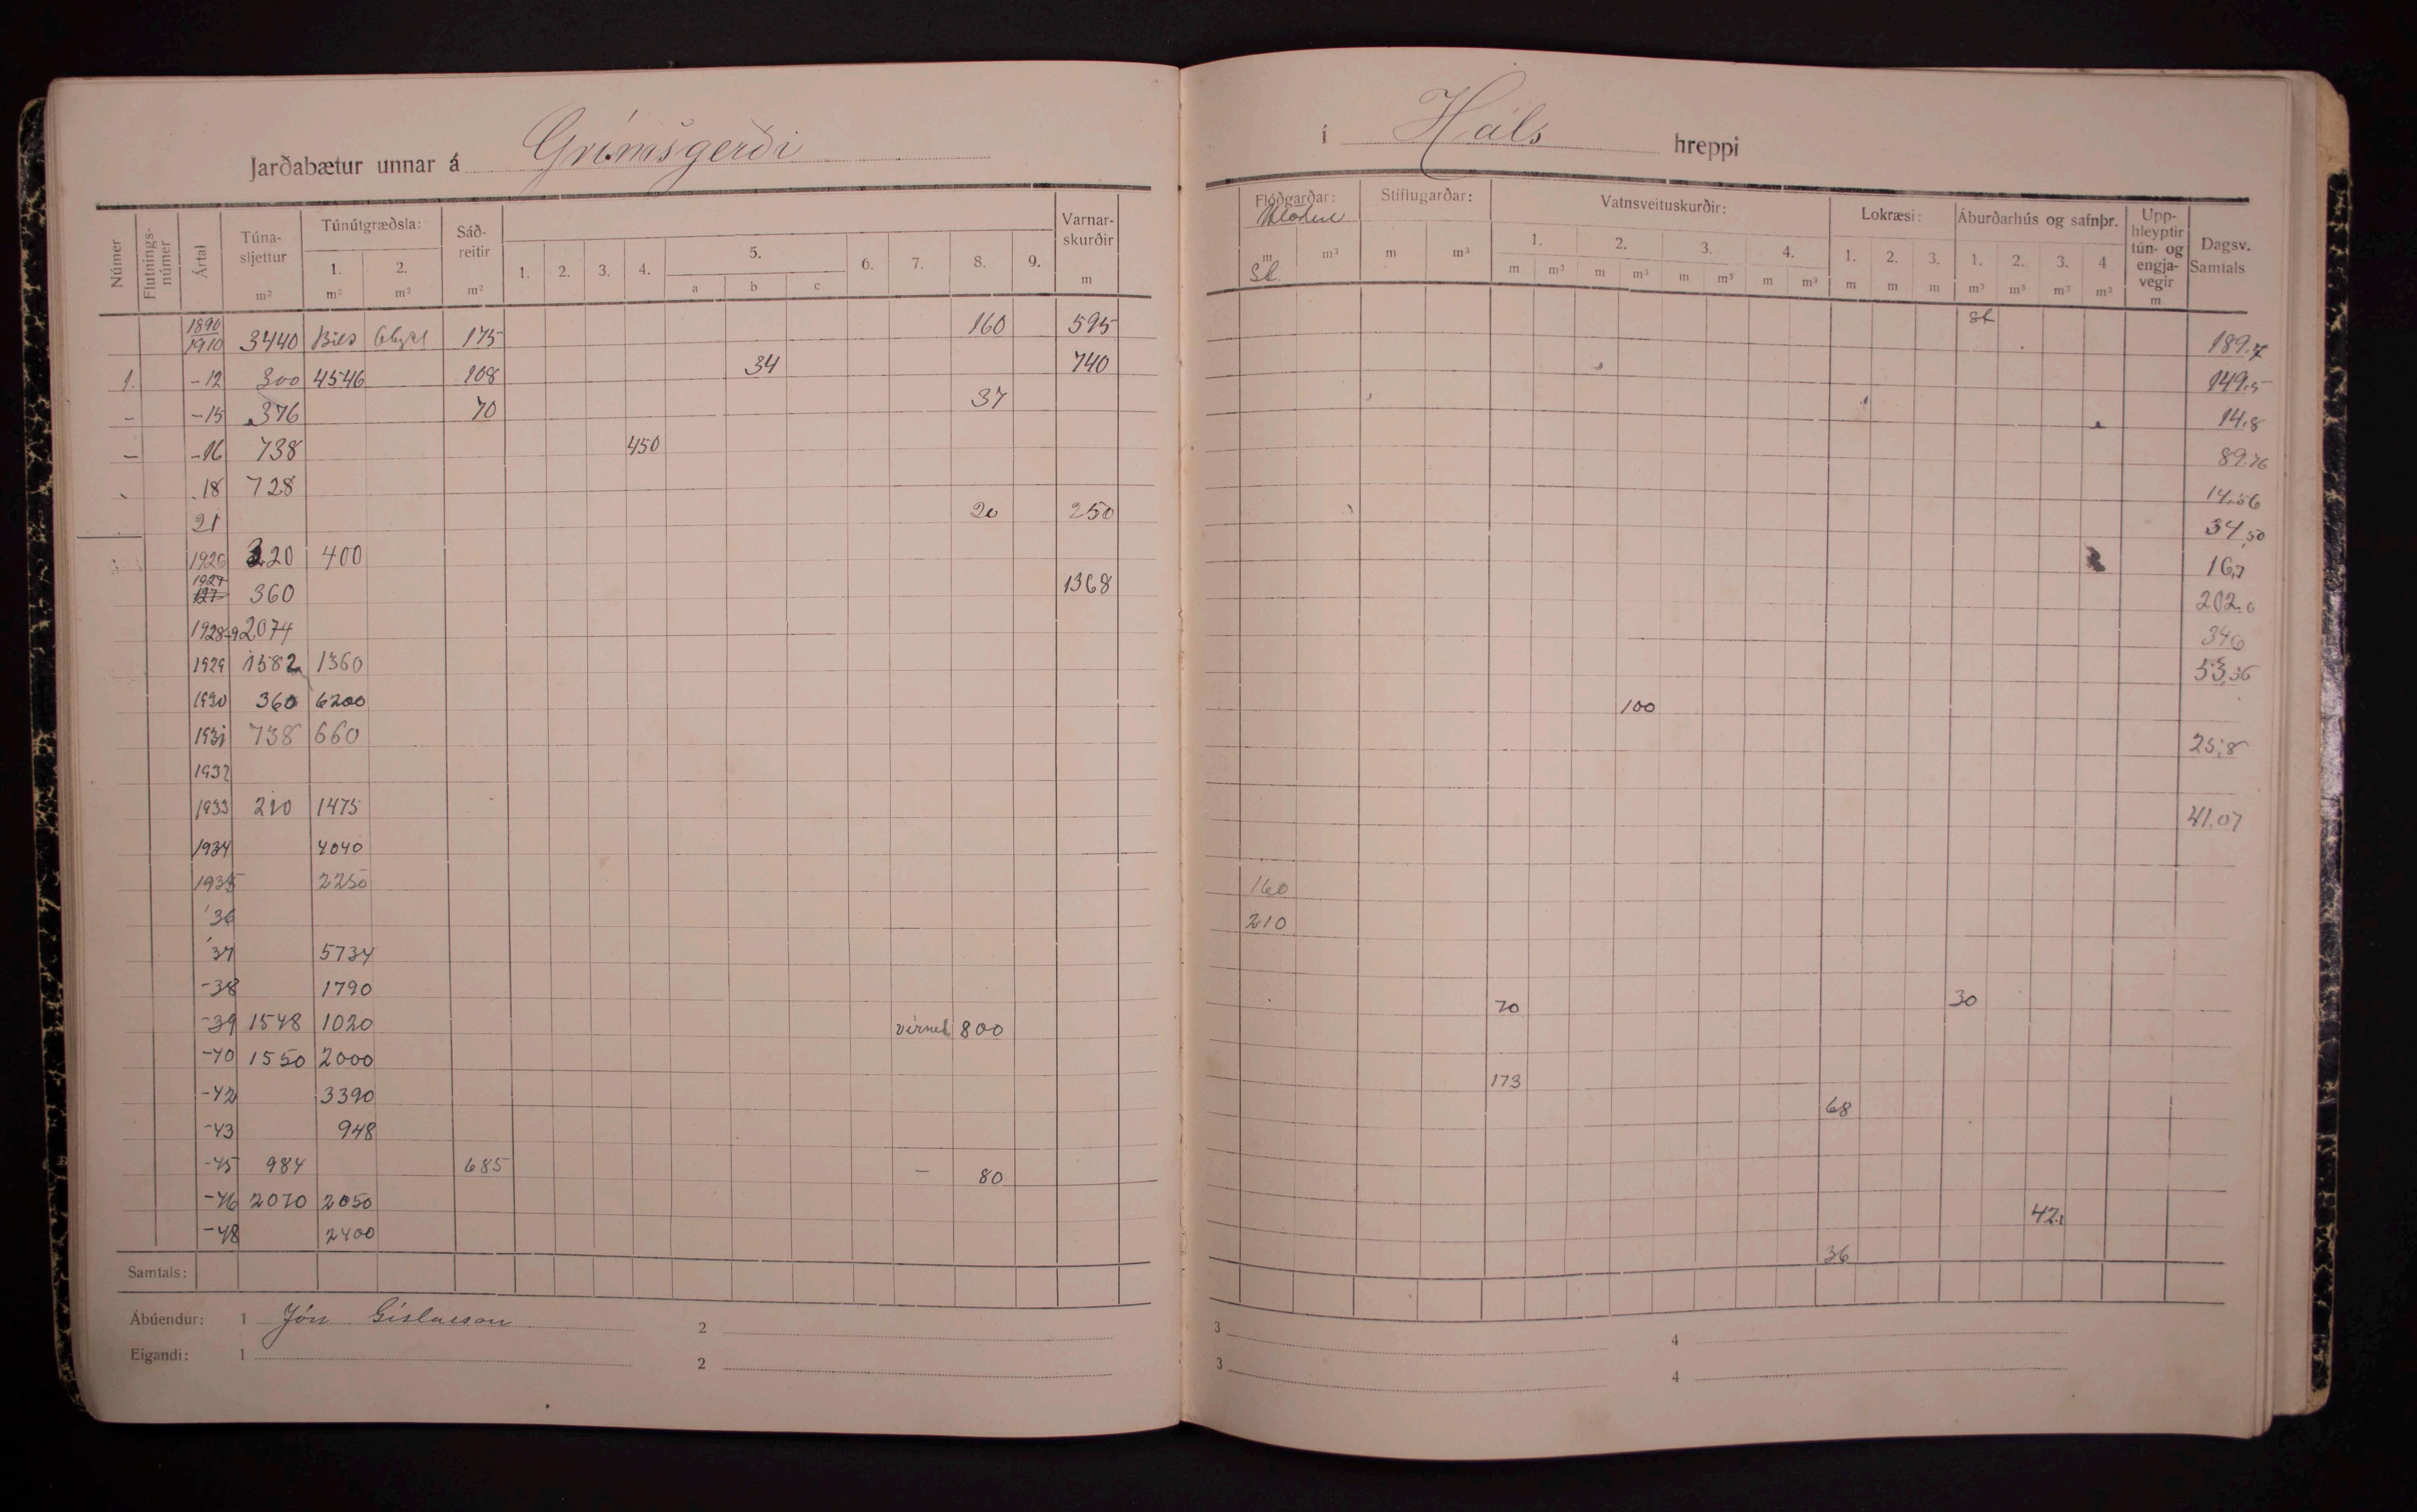 Jarðabætur unnar á Grímsgerði
í Háls hreppi
Númer Flutnings-númer Ártal Túna-sljettur m² Túnútgræðsla: 1. m² 2. m² Sáð-reitir m² 1. 2. 3. 4. 5. a b c 6. 7. 8. 9. Varnar-skurðir m
Flóðgarðar: m m³ Stíflugarðar: m m³ Vatnsveituskurðir: 1. m m³ 2. m m³ 3. m m³ 4. m m³ Lokræsi: 1. m 2. m 3. m Áburðarhús og safnþr. 1. m³ 2. m³ 3. m³ 4 m³ Upp-hleyptir tún- og engja-vegir m Dagsv. Samtals
1890/1910 3440 175 160 595 189.7
1. -12 300 4546 108 34 740 149.5
- -15 376 70 37 14.8
- -16 738 450 89.76
18 728 14.56
21 20 250 34,50
1926 320 400 16,7
1927 360 1368 202.6
1928-9 2074 346
1929 1582 1360 53,36
1930 360 6200 100
1931 738 660 25,8
1932
1933 210 1475 41.07
1934 4040
1935 2250 160
'36 210
'37 5734
-38 1790
-39 1548 1020 vírnet 800 70 30
-40 1550 2000
-42 3390 173
-43 948 68
-45 984 685 - 80
-46 2070 2050 42
-48 2400 36
Samtals:
Ábúendur: 1 Jón Gíslason 2 3 4
Eigandi: 1 2 3 4